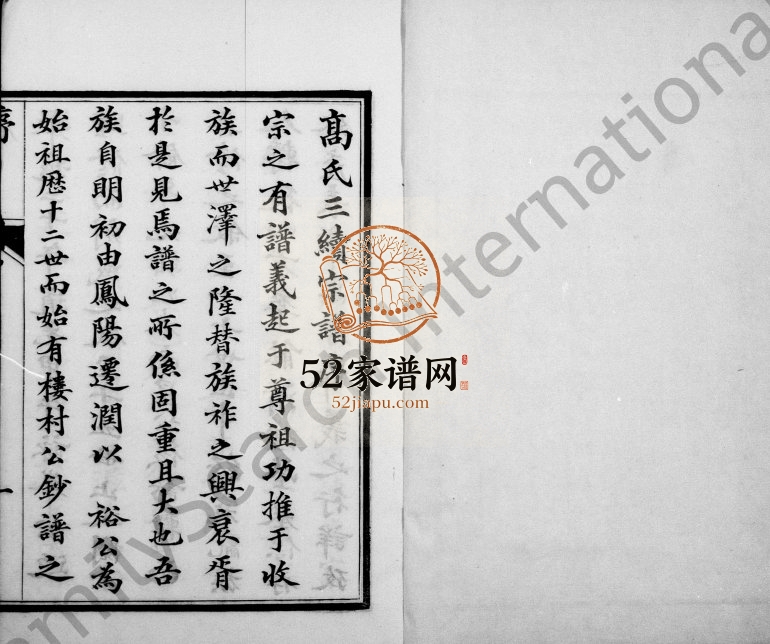 高氏三續宗譜序
宗之有譜義起于尊祖功推于收
族而世澤之隆替族祚之興衰胥
於是見焉譜之所係固重且大也吾
族自明初由鳳陽遷潤以 裕公為
始祖歷十二世而始有樓村公鈔譜之
序
一
52家谱网
52jiapu.com
FamilySearch International